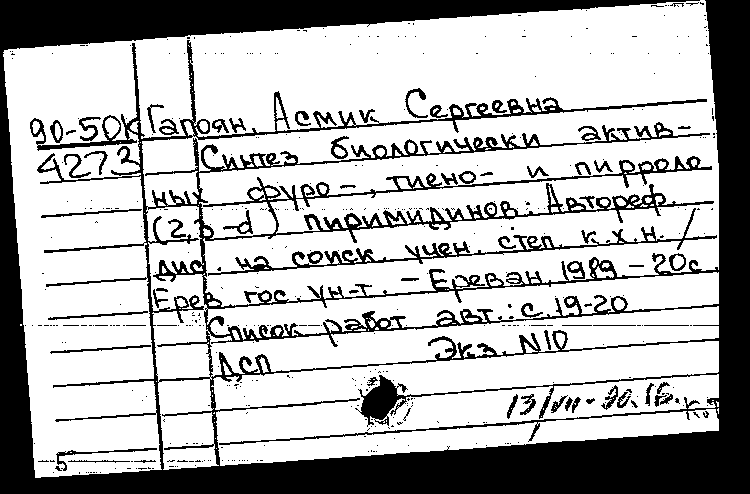 90-50К Гапоян, Асмик Сергеевна
4273 Синтез биологически актив-
ных фуро-, тиено- и пирроло
(2,3-d) пиримидинов: Автореф.
дис. на соиск. учен. степ. к.х.н. /
Ерев. гос. ун-т. - Ереван, 1989. - 20с.
Список работ авт.: с. 19-20
ДСП Экз. N10
13/VII-90. 1б.
5